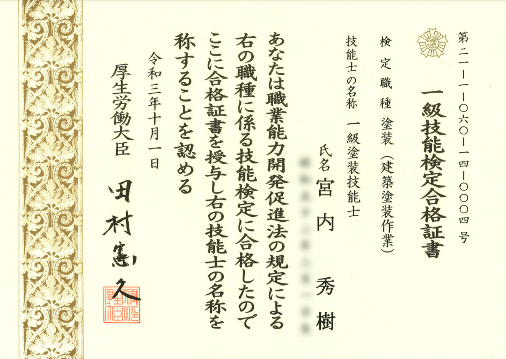 第二一-一-〇六〇-一四-〇〇〇四 号
一級技能検定合格証書
検定職種 塗装（建築塗装作業）
技能士の名称 一級塗装技能士
氏名 宮内 秀樹
あなたは職業能力開発促進法の規定による
右の職種に係る技能検定に合格したので
ここに合格証書を授与し右の技能士の名称を
称することを認める
令和三年十月一日
厚生労働大臣 田村憲久